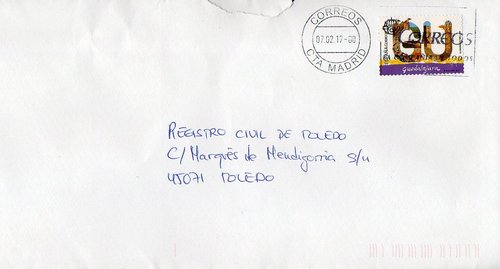 CORREOS
07.02.17-00
CTA MADRID
GU
CORREOS
Guadalajara
REGISTRO CIVIL DE TOLEDO
C/ Marqués de Mendigorria s/n
45071 TOLEDO